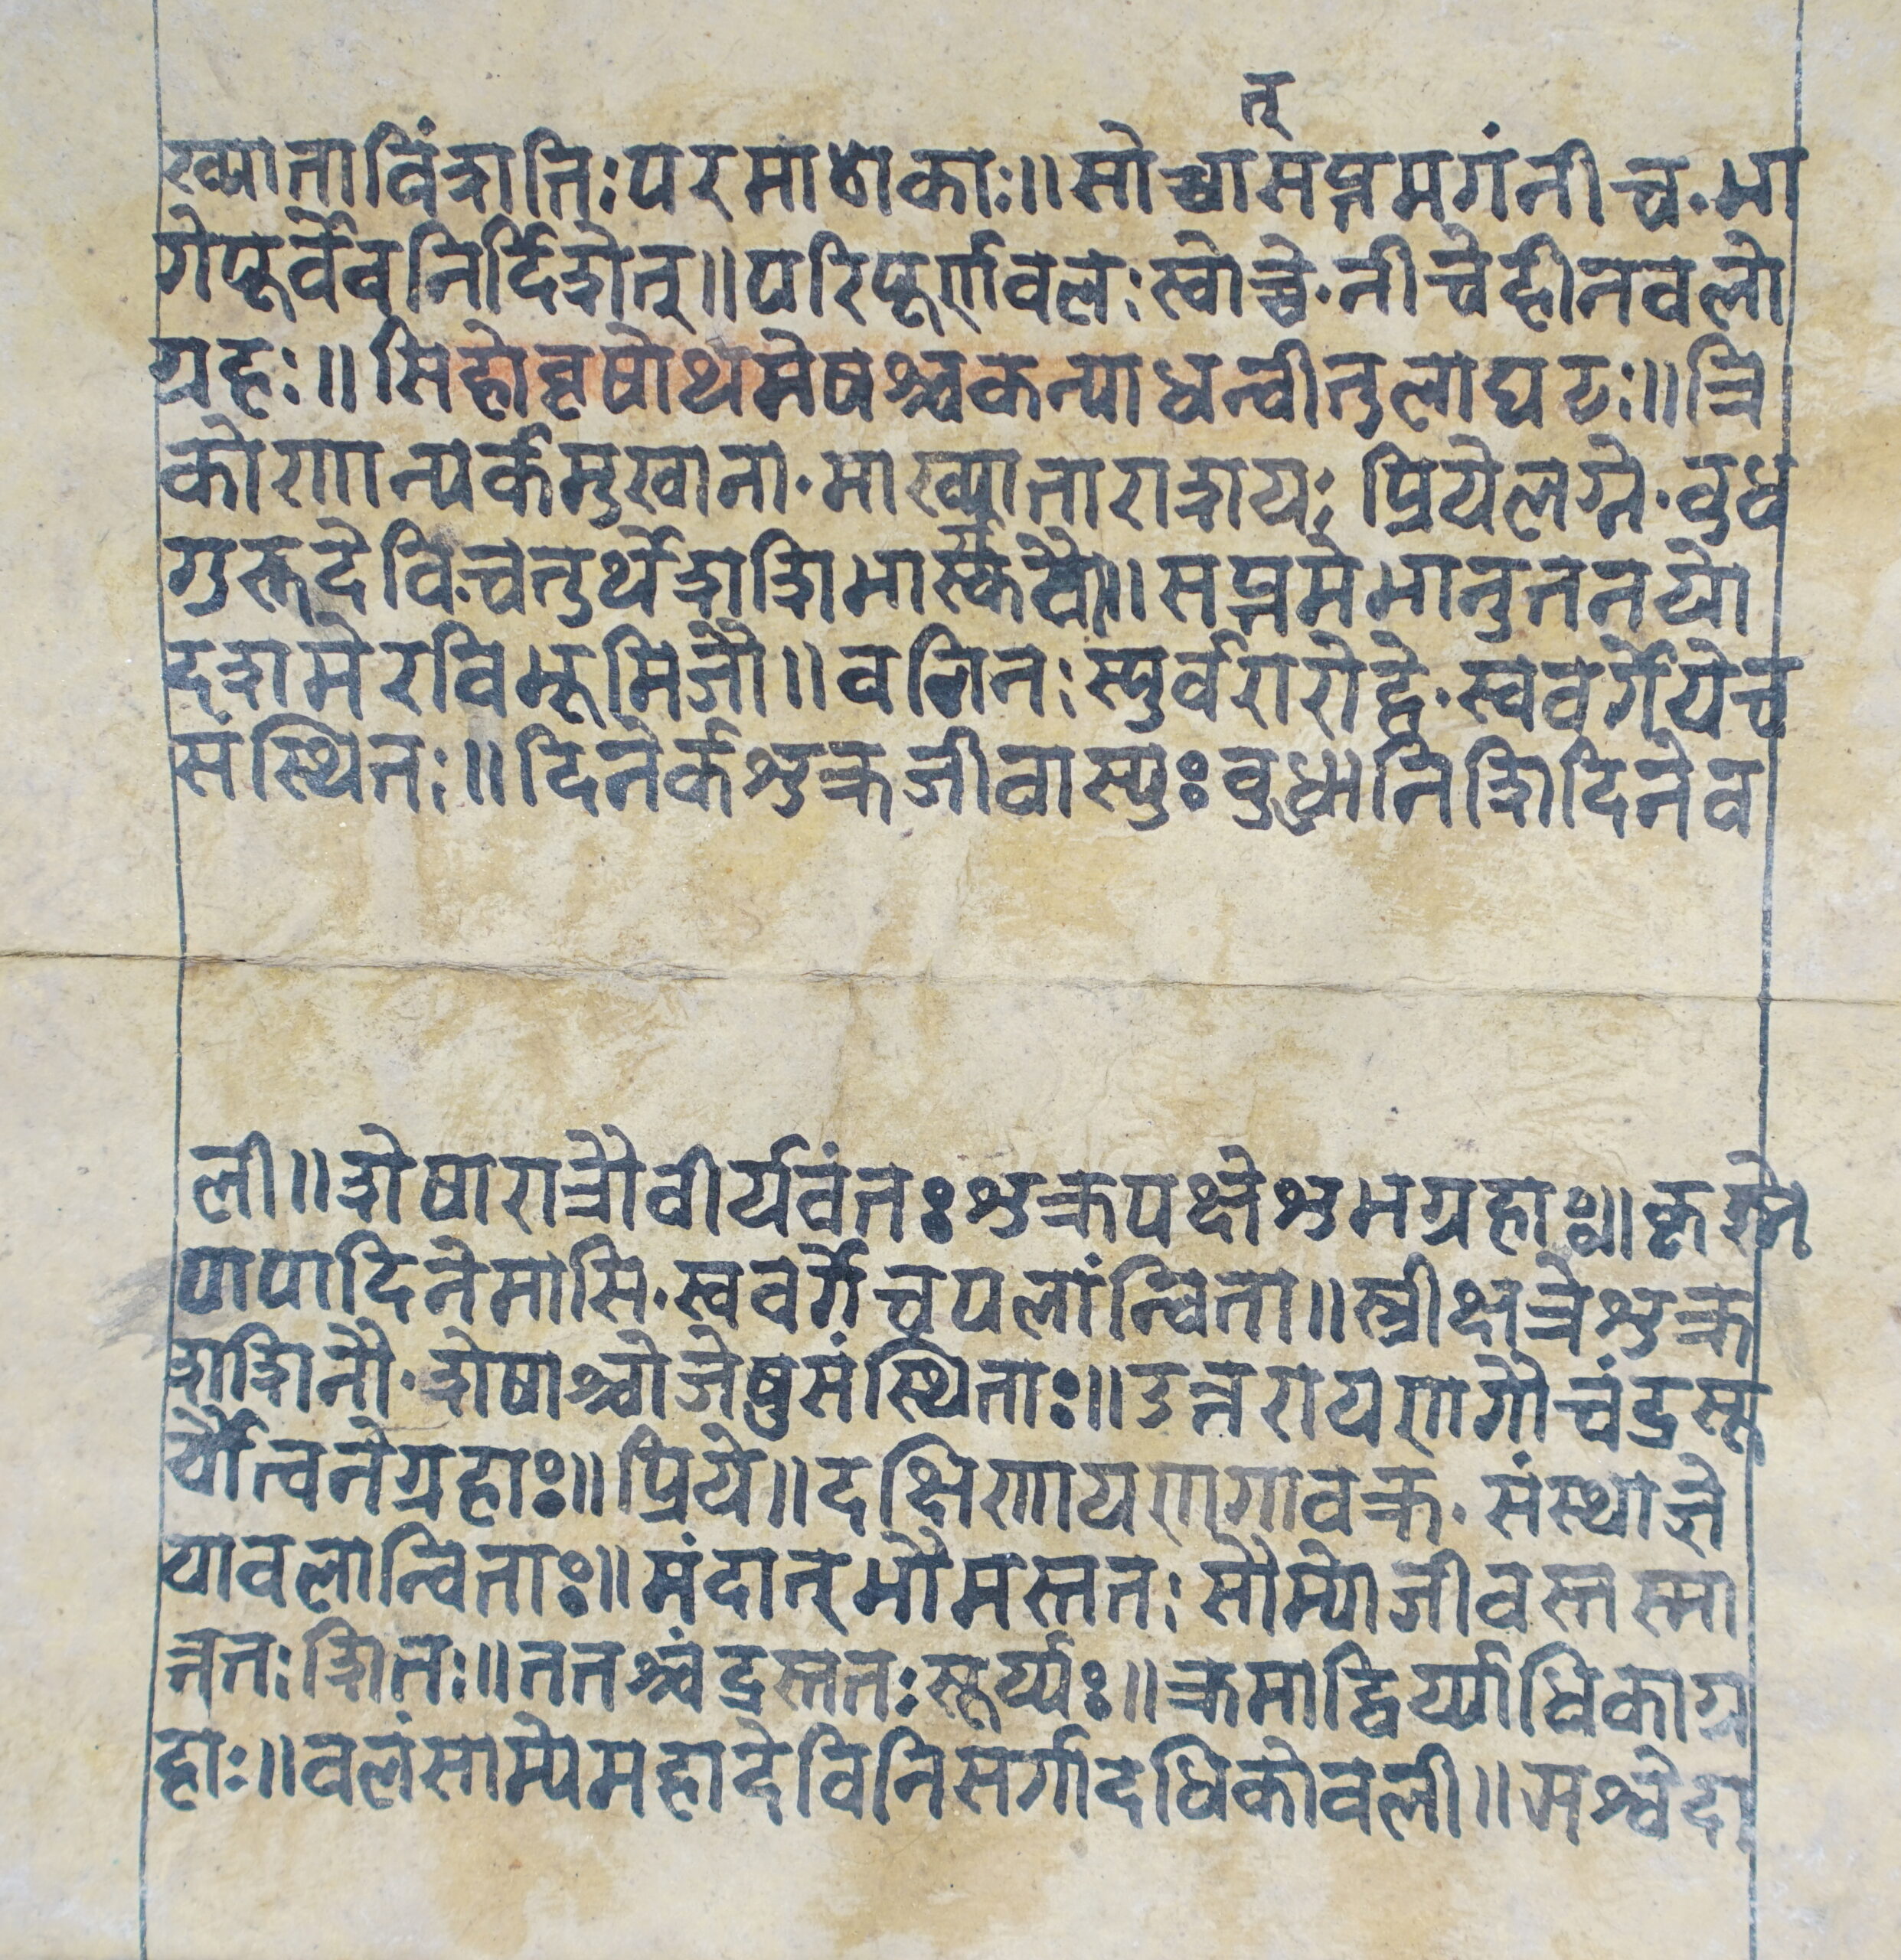 त्
ख्याता विंशतिः परमाणकाः॥ सोच्चासप्तमगं नीच. भा
गे पूर्वेव निर्दिशेत्॥ परिपूर्णवलः स्वोच्चे. नीचे हीनवलो
ग्रहः॥ सिहो वृषोथ मेषश्च कन्या धन्वी तुला घटः॥ त्रि
कोणान्यर्कमुखाना. माख्याता राशयः प्रिये लग्ने. वुध
गुरू देवि चतुर्थे शशिभार्ग वौ॥ सप्तमे भानुतनयो
दशमे रविभूमिजौ॥ वलिनः स्युर्वरारोहे. स्ववर्गे ये च
संस्थितः॥ दिनेर्कशुक्रजीवा स्युः वुधा निशि दिने व
ली॥ शेषा रात्रौ वीर्यवंतः शुक्रपक्षे शुभग्रहाः॥ कृष्णे
पापा दिने मासि. स्ववर्गे च पलांन्विता॥ स्त्रीक्षत्रे शुक्र
शशिनौ. शेषाश्चोजेषु संस्थिताः॥ उत्तरायणगौ चंद्रसू
र्यौ त्वने ग्रहाः॥ प्रिये॥ दक्षिणायणगा वक्र. संस्था ज्ञे
या वलान्विताः॥ मंदात् भौमस्ततः सौम्यो जीवस्तस्मा
त्ततः शितः॥ ततश्चंद्रस्ततः सूर्य्यः॥ क्रमाद्विर्य्याधिका ग्र
हाः॥ वलं साम्ये महादेवि निसर्गादधिको वली॥ मश्वेदा